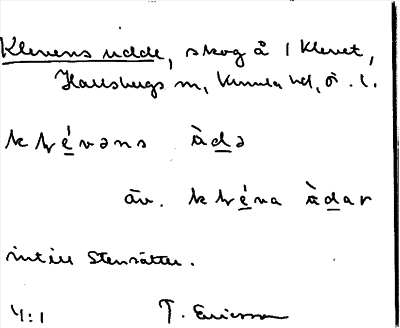 Klevens udde, skog å 1 Klevet,
Hallsbergs sn, Kumla hd, Ö. l.
klévəns àdə
äv. kléva àdar
intill Stensätter.
4:1 T. Ericsson